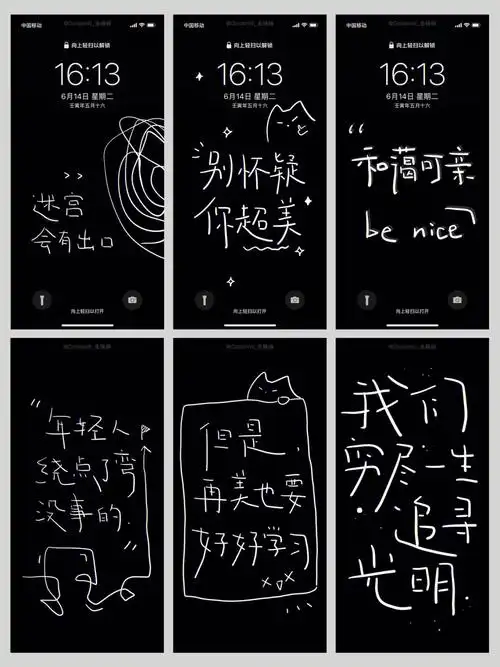 中国移动
向上轻扫以解锁
16:13
6月14日 星期二
壬寅年五月十六
>>
迷宫
会有出口
向上轻扫以打开
中国移动
向上轻扫以解锁
16:13
6月14日 星期二
壬寅年五月十六
别怀疑
你超美
向上轻扫以打开
中国移动
向上轻扫以解锁
16:13
6月14日 星期二
壬寅年五月十六
“和蔼可亲
be nice”
向上轻扫以打开
“年轻人
绕点了弯
没事的.”
但是,
再美也要
好好学习
我们
穷尽一生
追寻
光明.